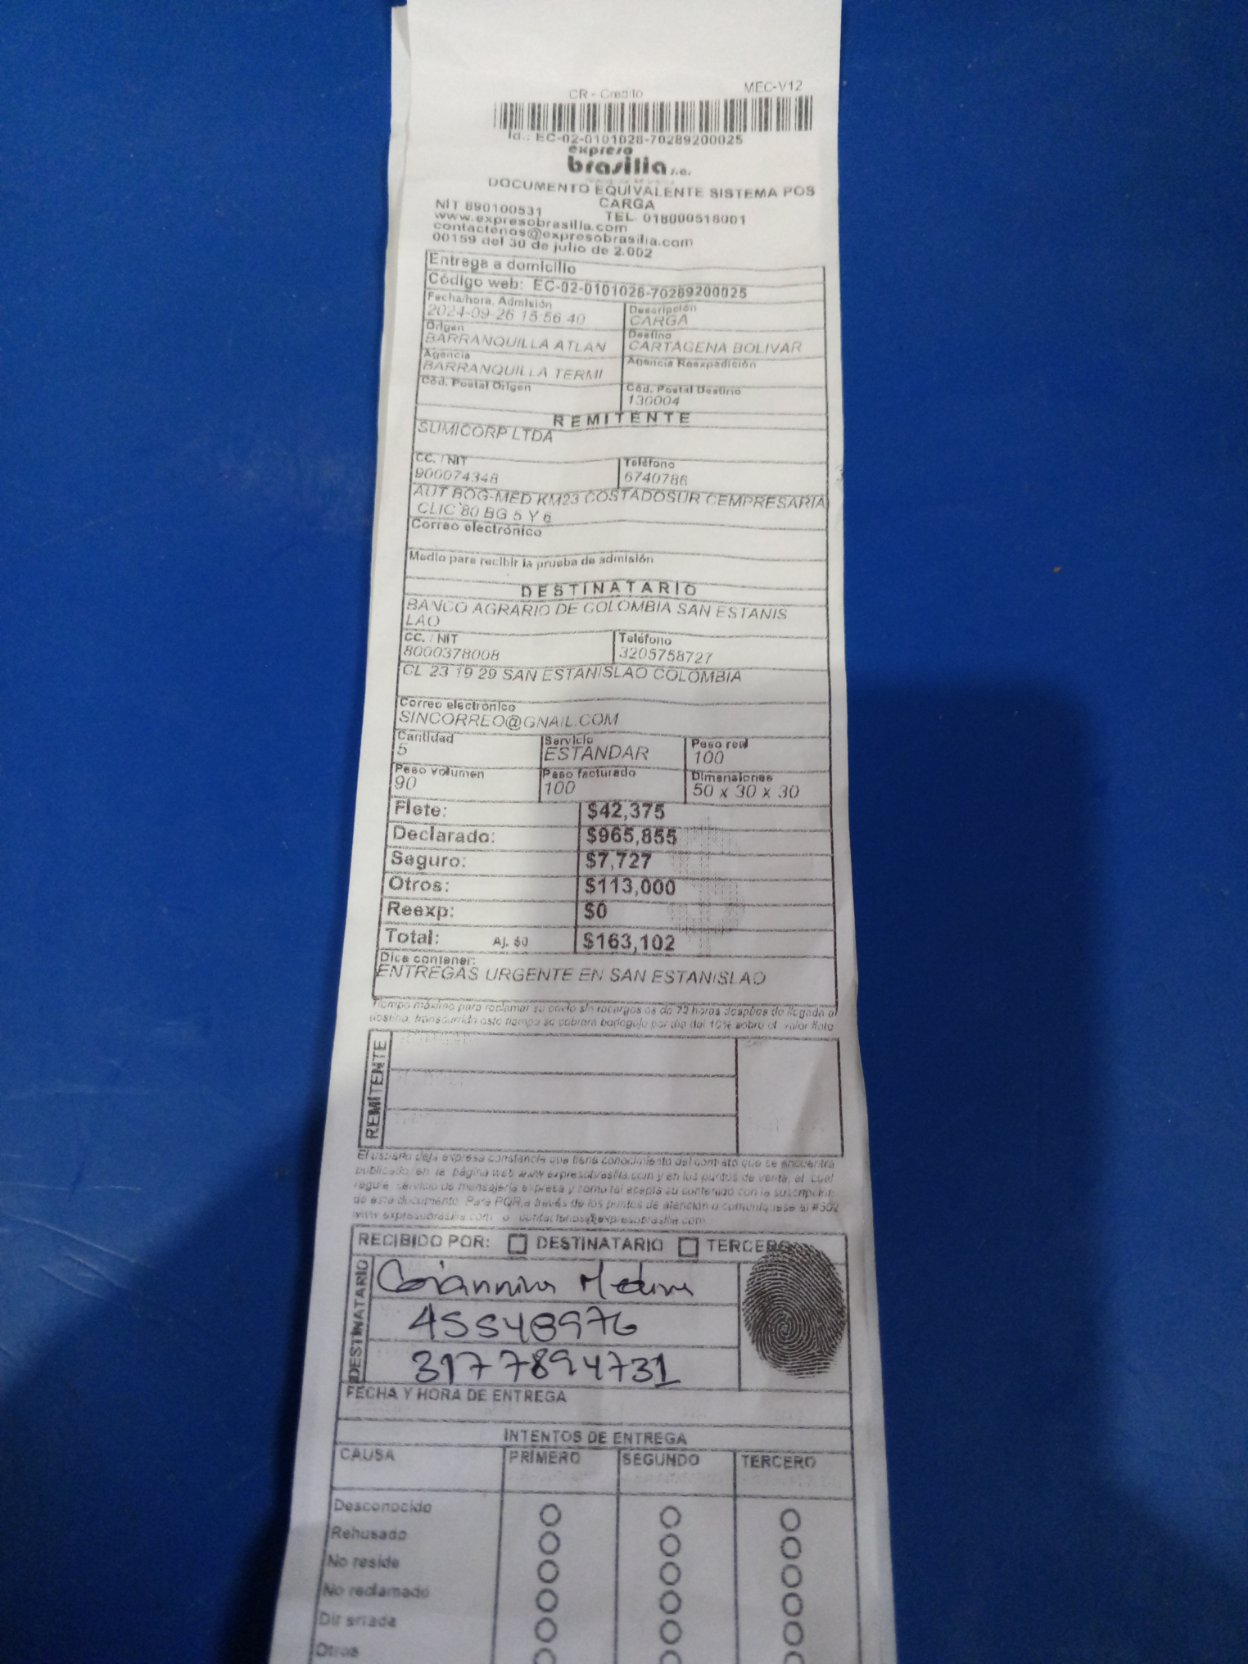 CR - Credito MEC-V12
Id.: EC-02-0101028-70289200025
expreso
brasilia s.a.
DOCUMENTO EQUIVALENTE SISTEMA POS
CARGA
NIT 890100531 TEL 018000518001
www.expresobrasilia.com
contactenos@expresobrasilia.com
00159 del 30 de julio de 2.002
Entrega a domicilio
Código web: EC-02-0101028-70289200025
Fecha/hora. Admisión Descripción
2024-09-26 15:56:40 CARGA
Origen Destino
BARRANQUILLA ATLAN CARTAGENA BOLIVAR
Agencia Agencia Reexpedición
BARRANQUILLA TERMI
Cód. Postal Origen Cód. Postal Destino
130004
REMITENTE
SUMICORP LTDA
CC. / NIT Teléfono
900074348 6740786
AUT BOG-MED KM23 COSTADOSUR CEMPRESARIA
CLIC 80 BG 5 Y 6
Correo electrónico
Medio para recibir la prueba de admisión
DESTINATARIO
BANCO AGRARIO DE COLOMBIA SAN ESTANIS
LAO
CC. / NIT Teléfono
8000378008 3205758727
CL 23 19 29 SAN ESTANISLAO COLOMBIA
Correo electrónico
SINCORREO@GNAIL.COM
Cantidad Servicio Peso real
5 ESTANDAR 100
Peso volumen Peso facturado Dimensiones
90 100 50 x 30 x 30
Flete: $42,375
Declarado: $965,855
Seguro: $7,727
Otros: $113,000
Reexp: $0
Total: Aj. $0 $163,102
Dice contener:
ENTREGAS URGENTE EN SAN ESTANISLAO
Tiempo máximo para reclamar su envío sin recargos es de 72 horas después de llegada al
destino, transcurrido este tiempo se cobrara bodegaje por día del 10% sobre el valor flete
REMITENTE
El usuario deja expresa constancia que tiene conocimiento del contrato que se encuentra
publicado en la página web www.expresobrasilia.com y en los puntos de venta, el cual
regula servicio de mensajería expresa y como tal acepta su contenido con la suscripción
de este documento. Para PQR a través de los puntos de atención o comuníquese al #502
www.expresobrasilia.com o contactenos@expresobrasilia.com
RECIBIDO POR: DESTINATARIO TERCERO
DESTINATARIO
Giannina Medina
45548976
3177894731
FECHA Y HORA DE ENTREGA
INTENTOS DE ENTREGA
CAUSA PRIMERO SEGUNDO TERCERO
Desconocido
Rehusado
No reside
No reclamado
Dir errada
Otros